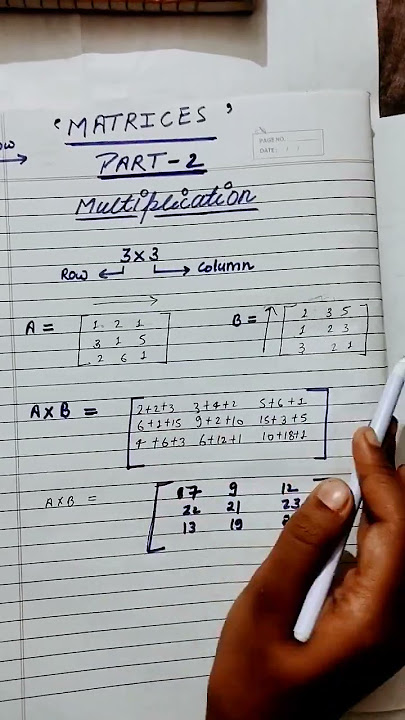 'MATRICES'
PART-2
PAGE NO.
DATE: / /
Multiplication
3x3
Row column
A = 1 2 1
3 1 5
2 6 1
B = 2 3 5
1 2 3
3 2 1
AXB = 2+2+3 3+4+2 5+6+1
6+1+15 9+2+10 15+3+5
4+6+3 6+12+1 10+18+1
AXB = 17 9 12
22 21 23
13 19